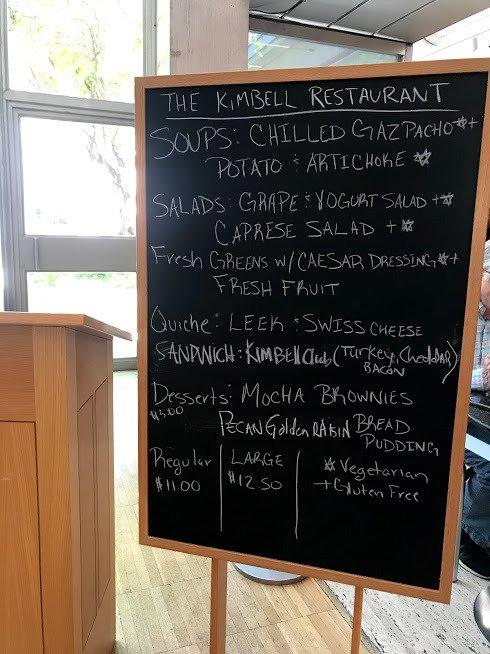 THE KIMBELL RESTAURANT
SOUPS: CHILLED GAZPACHO ✡+
POTATO & ARTICHOKE ✡
SALADS: GRAPE & YOGURT SALAD +✡
CAPRESE SALAD +✡
Fresh GREENS W/ CAESAR DRESSING ✡+
FRESH FRUIT
Quiche: LEEK & SWISS CHEESE
SANDWICH: KIMBELL Club (Turkey, CheDDAR,
BACON)
Desserts: MOCHA BROWNIES
$3.00
PECAN Golden RAISIN BREAD
PUDDING
Regular LARGE ✡ Vegetarian
$11.00 $12.50 + Gluten Free